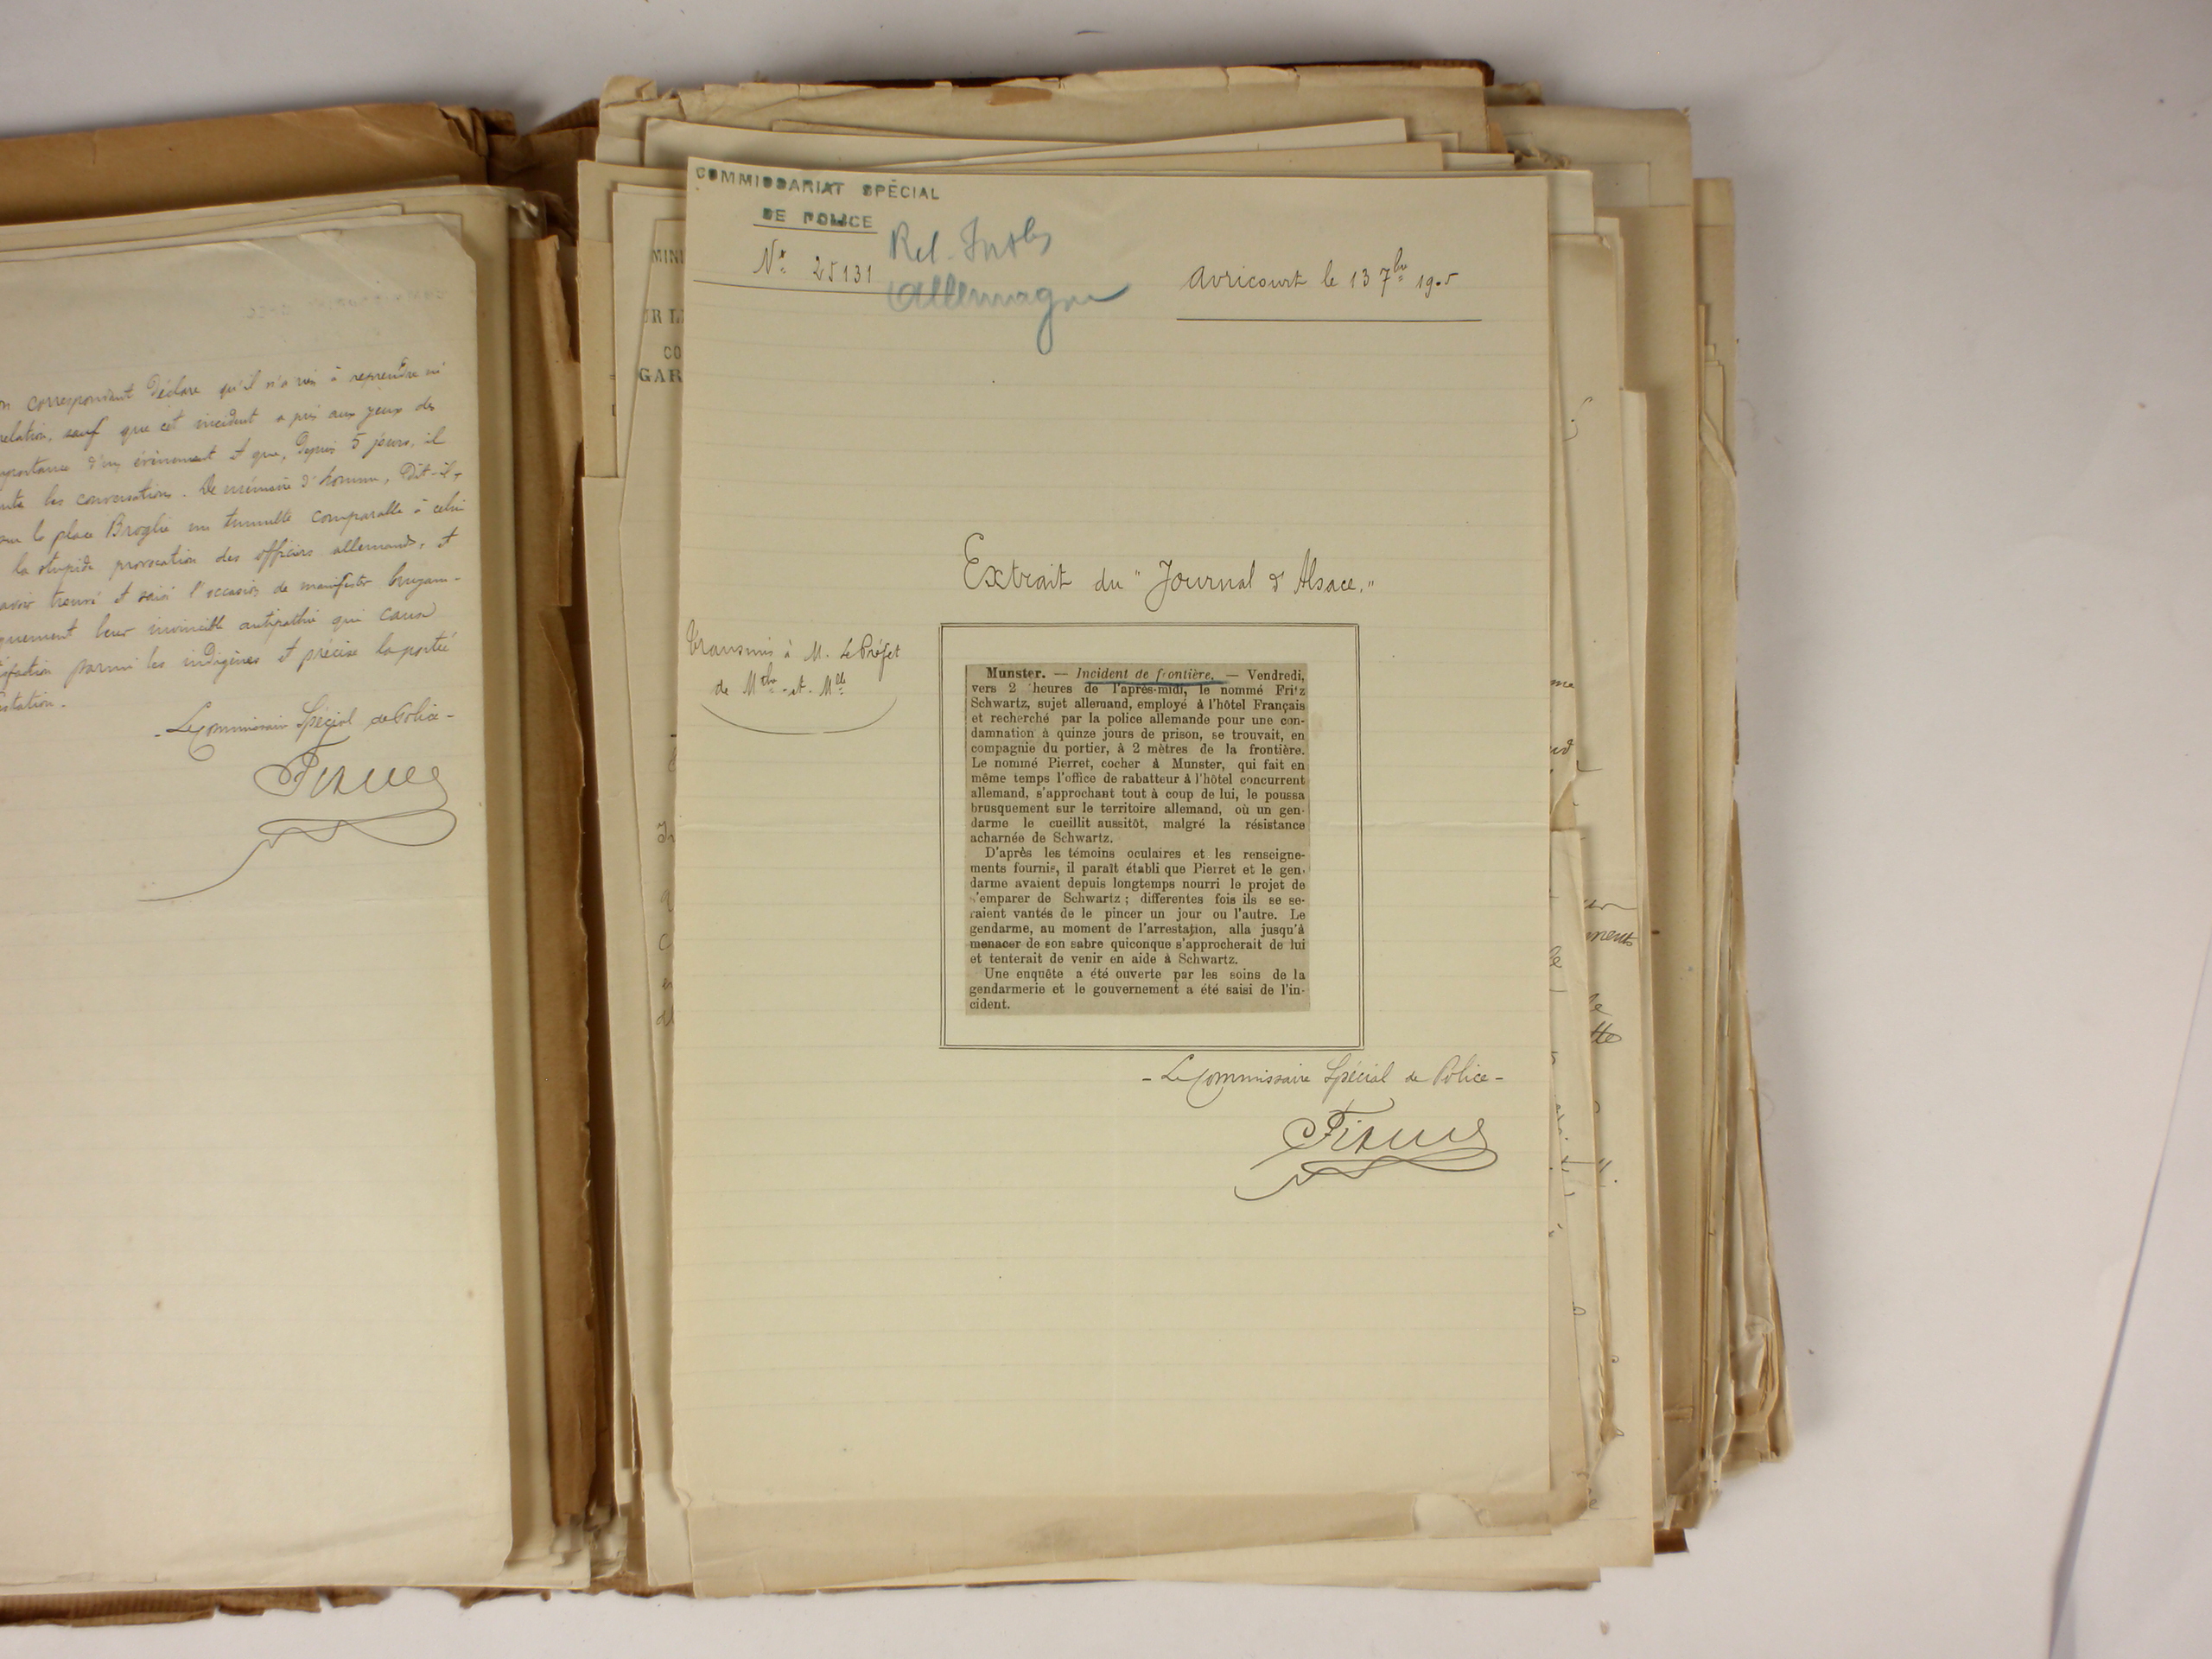 correspondant déclare qu'il n'a rien à reprendre ni
relation, sauf que cet incident a pris aux yeux des
d'un évènement et que, depuis 5 jours, il
les conversations. De mémoire d'homme, dit-il,
la place Broglie un tumulte comparable à celui
la stupide provocation des officiers allemands, et
avoir trouvé et saisi l'occasion de manifester bruyam-
leur invincible antipathie qui cause
parmi les indigènes et précise la portée
Le Commissaire Spécial de Police -
COMMISSARIAT SPÉCIAL
DE POLICE
N° 25131
Rel. Intles
Allemagne
Avricourt le 13 7bre 1905
Extrait du "Journal d'Alsace."
Transmis à M. Le Préfet
de Mthe-et-Mlle
Munster. — Incident de frontière. — Vendredi,
vers 2 heures de l'après-midi, le nommé Fritz
Schwartz, sujet allemand, employé à l'hôtel Français
et recherché par la police allemande pour une con-
damnation à quinze jours de prison, se trouvait, en
compagnie du portier, à 2 mètres de la frontière.
Le nommé Pierret, cocher à Munster, qui fait en
même temps l'office de rabatteur à l'hôtel concurrent
allemand, s'approchant tout à coup de lui, le poussa
brusquement sur le territoire allemand, où un gen-
darme le cueillit aussitôt, malgré la résistance
acharnée de Schwartz.
D'après les témoins oculaires et les renseigne-
ments fournis, il paraît établi que Pierret et le gen-
darme avaient depuis longtemps nourri le projet de
s'emparer de Schwartz ; differentes fois ils se se-
raient vantés de le pincer un jour ou l'autre. Le
gendarme, au moment de l'arrestation, alla jusqu'à
menacer de son sabre quiconque s'approcherait de lui
et tenterait de venir en aide à Schwartz.
Une enquête a été ouverte par les soins de la
gendarmerie et le gouvernement a été saisi de l'in-
cident.
- Le Commissaire Spécial de Police -